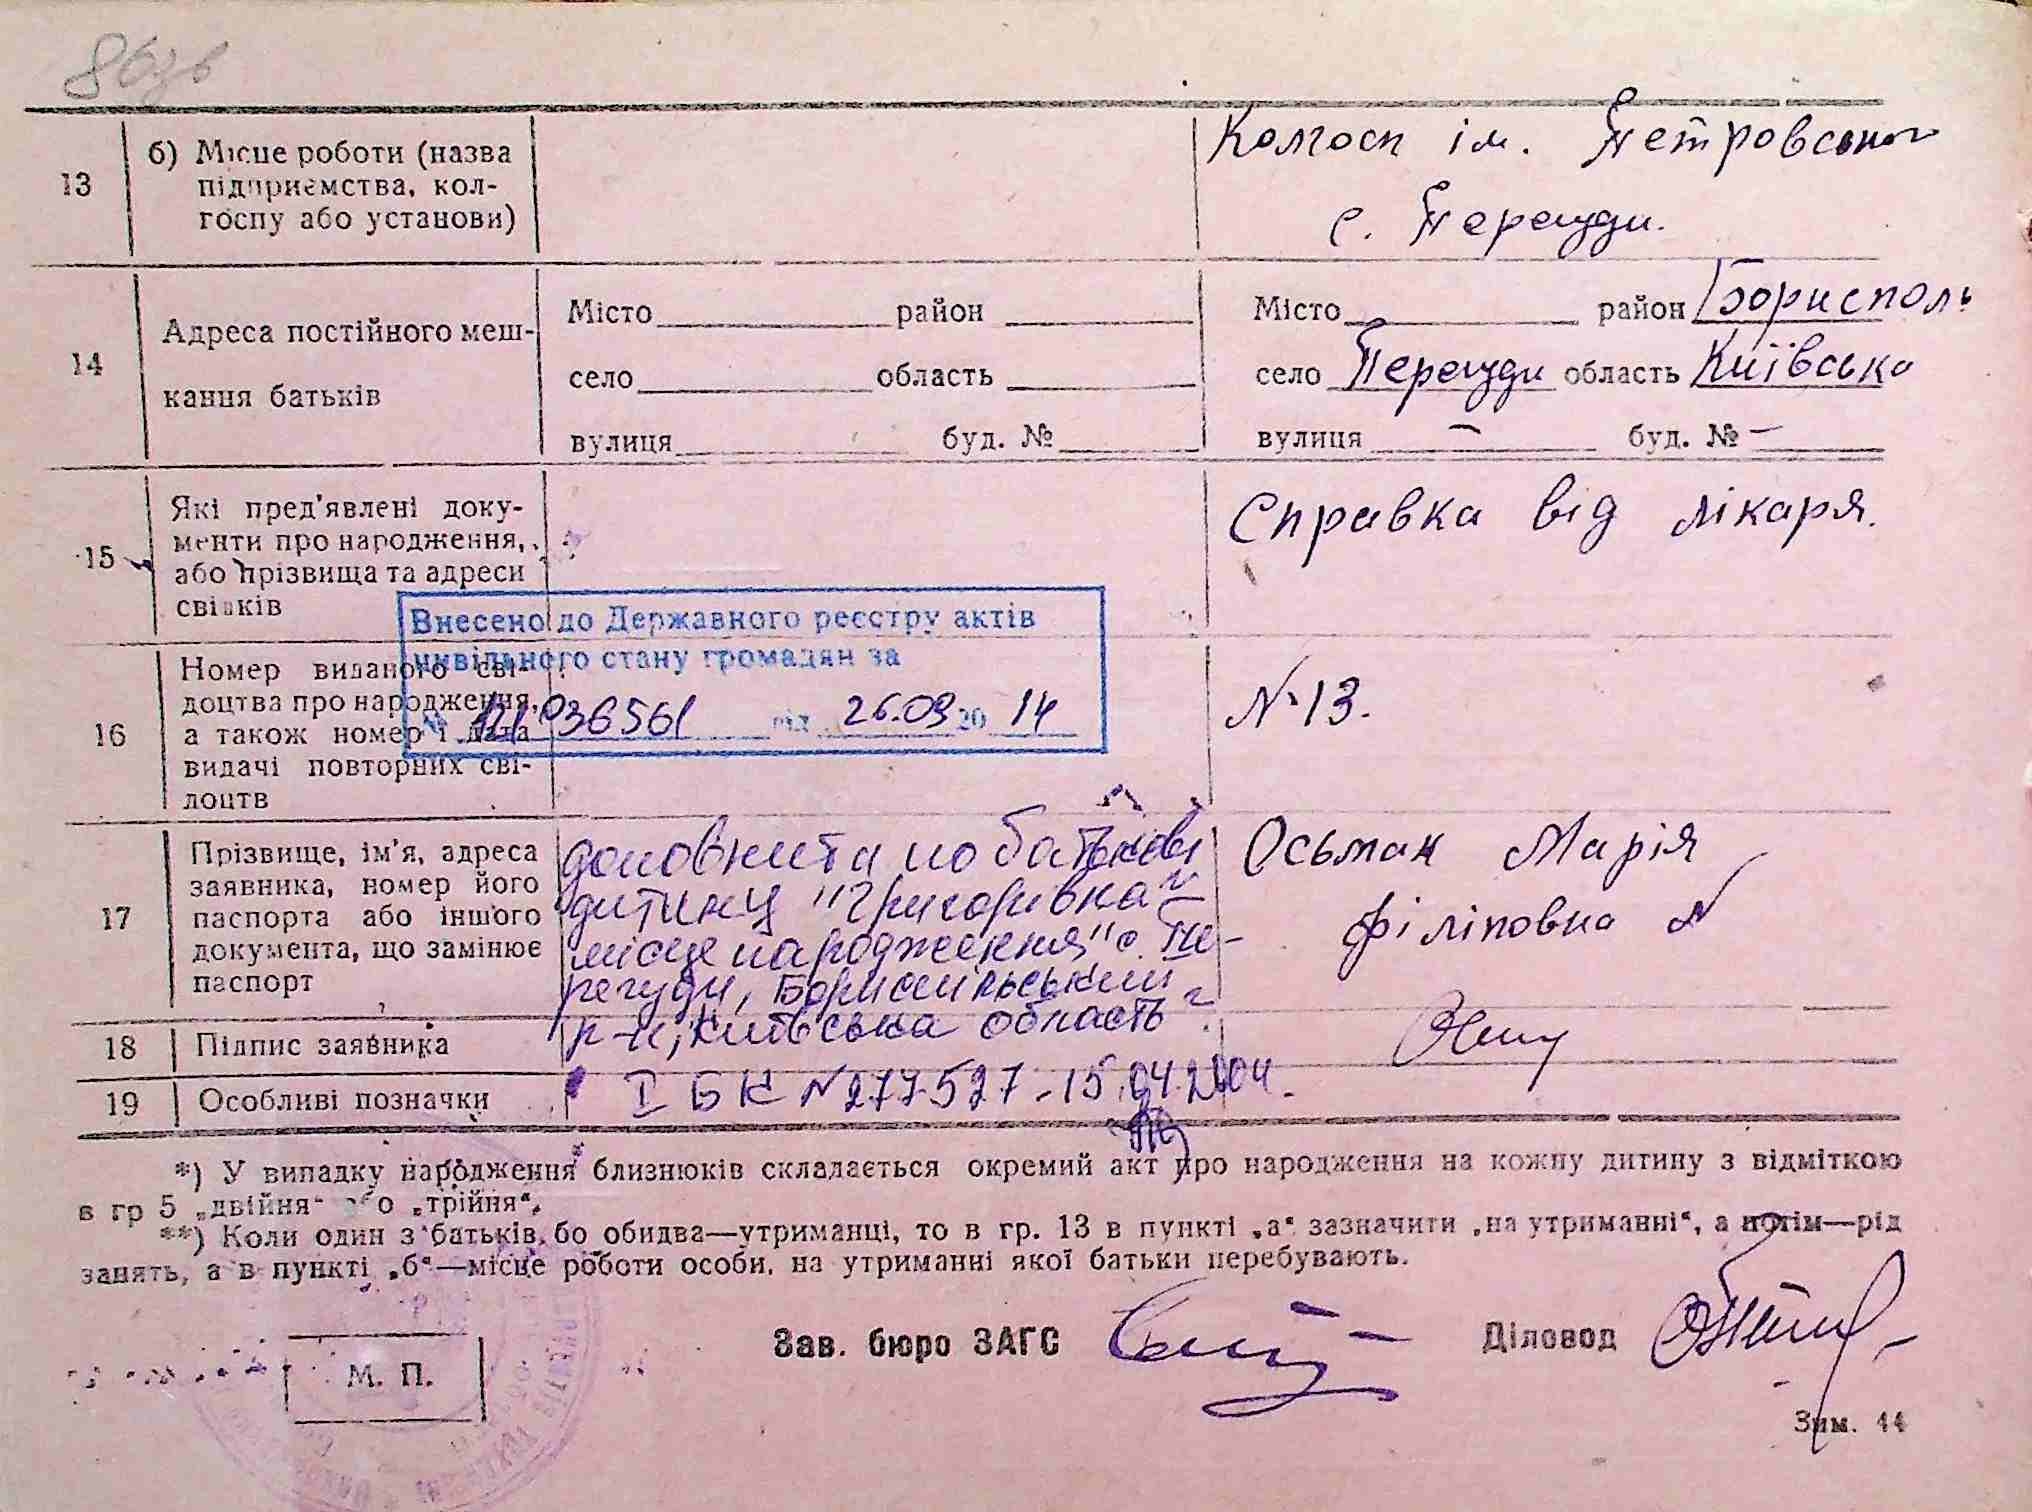 86зв
13
б) Місце роботи (назва
підприємства, кол-
госпу або установи)
Колгосп ім. Петровського
с. Перегуди.
14
Адреса постійного меш-
кання батьків
Місто район
село область
вулиця буд. №
Місто район Бориспол
село Перегуди область Київська
вулиця — буд. № —
15
Які пред'явлені доку-
менти про народження,
або прізвища та адреси
свідків
Справка від лікаря.
Внесено до Державного реєстру актів
цивільного стану громадян за
№ 036561 від 26.09 2014
16
Номер виданого сві-
доцтва про народження,
а також номер і дата
видачі повторних сві-
доцтв
№ 13.
17
Прізвище, ім'я, адреса
заявника, номер його
паспорта або іншого
документа, що замінює
паспорт
доповнити по батькові
дитини "Григорівна"
місце народження "с. Пе-
регуди, Бориспільський
р-н, Київська область".
Осьмак Марія
Філіповна
18
Підпис заявника
19
Особливі позначки
I БК № 277527 - 15.04.2004.
*) У випадку народження близнюків складається окремий акт про народження на кожну дитину з відміткою
в гр 5 „двійня“ або „трійня“.
**) Коли один з батьків, бо обидва—утриманці, то в гр. 13 в пункті „а“ зазначити „на утриманні“, а потім—рід
занять, а в пункті „б“—місце роботи особи, на утриманні якої батьки перебувають.
М. П.
Зав. бюро ЗАГС
Діловод
Зам. 44